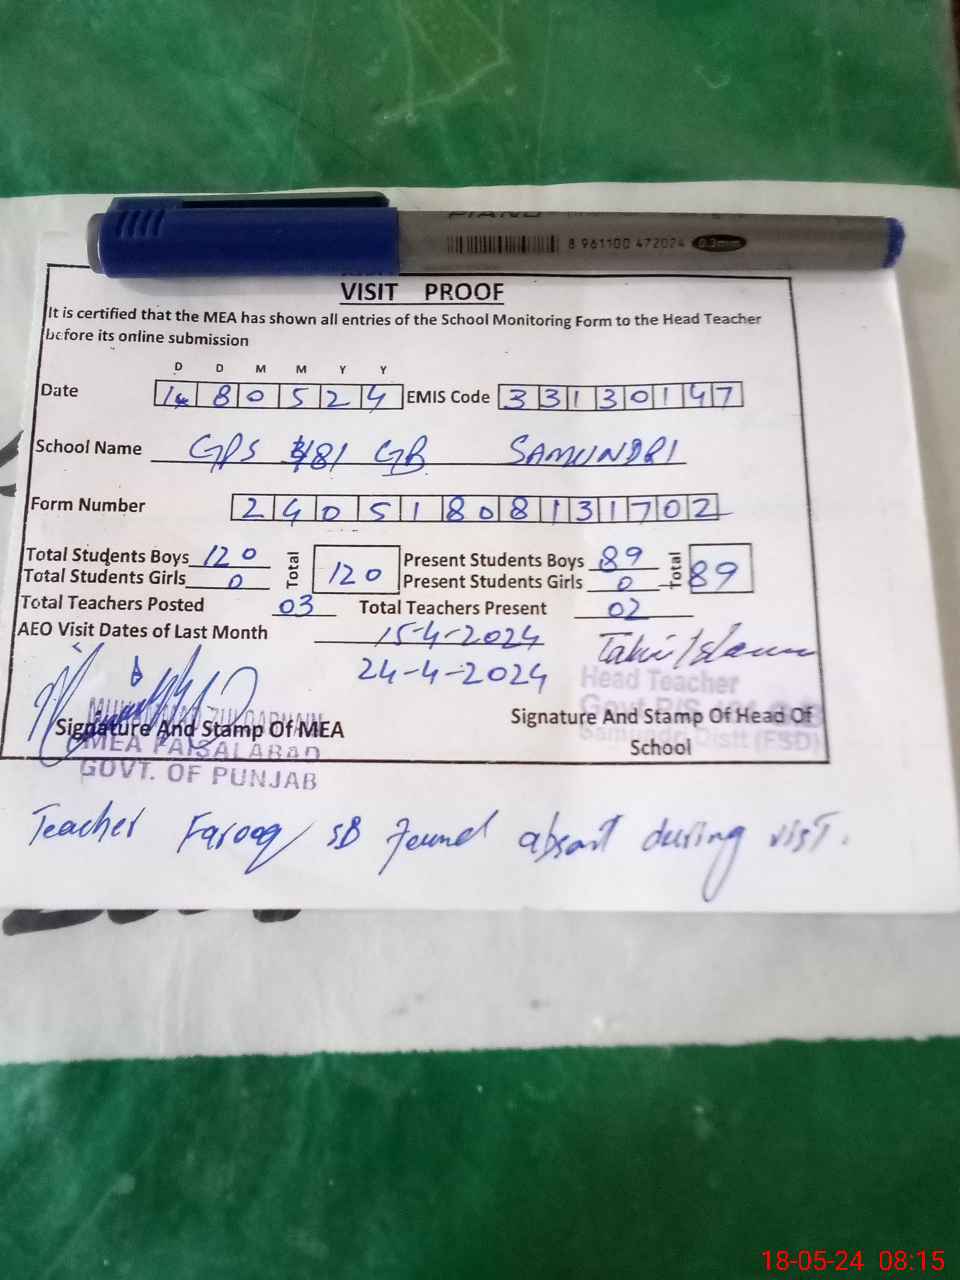 PIANO
8 961100 472024 0.3mm
VISIT PROOF
It is certified that the MEA has shown all entries of the School Monitoring Form to the Head Teacher
before its online submission
D D M M Y Y
Date 1 8 0 5 2 4 EMIS Code 3 3 1 3 0 1 4 7
School Name GPS 181 GB SAMUNDRI
Form Number 2 4 0 5 1 8 0 8 1 3 1 7 0 2
Total Students Boys 120 Total 120 Present Students Boys 89 Total 89
Total Students Girls 0 Present Students Girls 0
Total Teachers Posted 03 Total Teachers Present 02
AEO Visit Dates of Last Month 15-4-2024
24-4-2024
Head Teacher
Govt P/S
Samundri Distt (FSD)
Signature And Stamp Of MEA
Signature And Stamp Of Head Of
School
MEA FAISALABAD
GOVT. OF PUNJAB
Teacher Farooq SB found absent during visit.
18-05-24 08:15